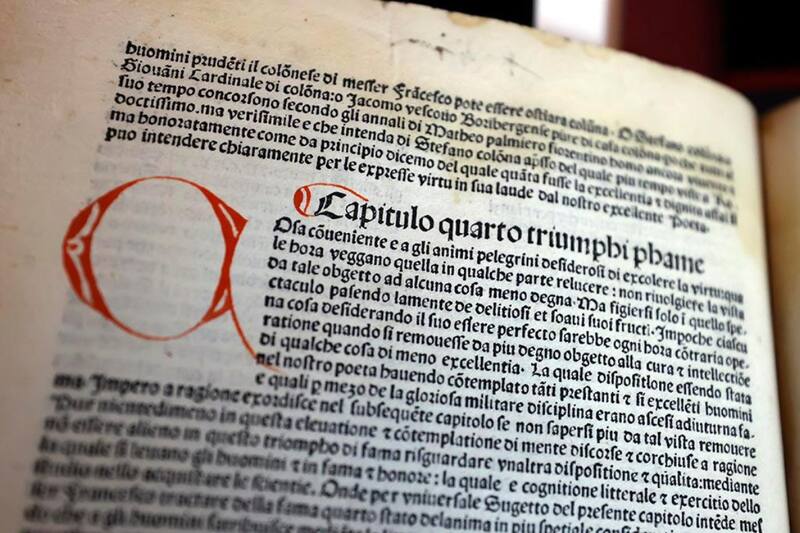 huomini prudẽti il colõnese di messer Frãcesco pote essere ostiara colõna. O Stefano colõna
Giouãni Cardinale di colõna:o Jacomo vescouo Boribergense pure di casa colõna
suo tempo concorsono secondo gli annali di Matheo palmiero fiorentino homo ancora
doctissimo.ma verisimile e che intenda di Stefano colõna apsso del quale piu tempo visse
ma honoratamente come da principio dicemo del quale quãta fusse la excellentia ⁊ dignita assai si
puo intendere chiaramente per le expresse virtu in sua laude dal nostro excellente Poeta.
Capitulo quarto triumphi phame
Osa cõueniente e a gli animi pelegrini desiderosi di excolere la virtu:qua
le hora veggano quella in qualche parte relucere : non riuolgiere la vista
da tale obgetto ad alcuna cosa meno degna. Ma figiersi solo i quello spe.
ctaculo pasendo lamente de delitiosi et soaui suoi fructi. Impoche ciascu
na cosa desiderando il suo essere perfecto sarebbe ogni hora cõtraria ope.
ratione quando si remouesse da piu degno obgetto alla cura ⁊ intellectiõe
di qualche cosa di meno excellentia. La quale dispositione essendo stata
nel nostro poeta hauendo cõtemplato tãti prestanti ⁊ si excellẽti huomini
e quali p mezo de la gloriosa militare disciplina erano ascesi adiuturna fa.
ma. Impero a ragione exordisce nel subsequẽte capitolo se non sapersi piu da tal vista remouere
Pur nientedimeno in questa eleuatione ⁊ cõtemplatione di mente discorse ⁊ corchiuse a ragione
nõ essere alieno in questo triompho di fama risguardare vnaltra dispositione ⁊ qualita:mediante
la quale si leuano gli huomini ⁊ in fama ⁊ honore: la quale e cognitione litterale ⁊ exercitio dello
studio nello acquistare le scientie. Onde per vniuersale Sugetto del presente capitolo intẽde mes
ser Francesco tractare della fama quarto stato delanima in piu spetiale
do che a gli huomini